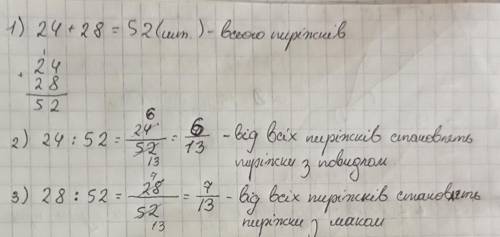 1) 24 + 28 = 52 (шт.) - всього пиріжків
1
+ 24
28
52
2) 24 : 52 = 24/52 = 6/13 - від всіх пиріжків становлять
6
13
пиріжки з повидлом
3) 28 : 52 = 28/52 = 7/13 - від всіх пиріжків становлять
7
13
пиріжки з маком